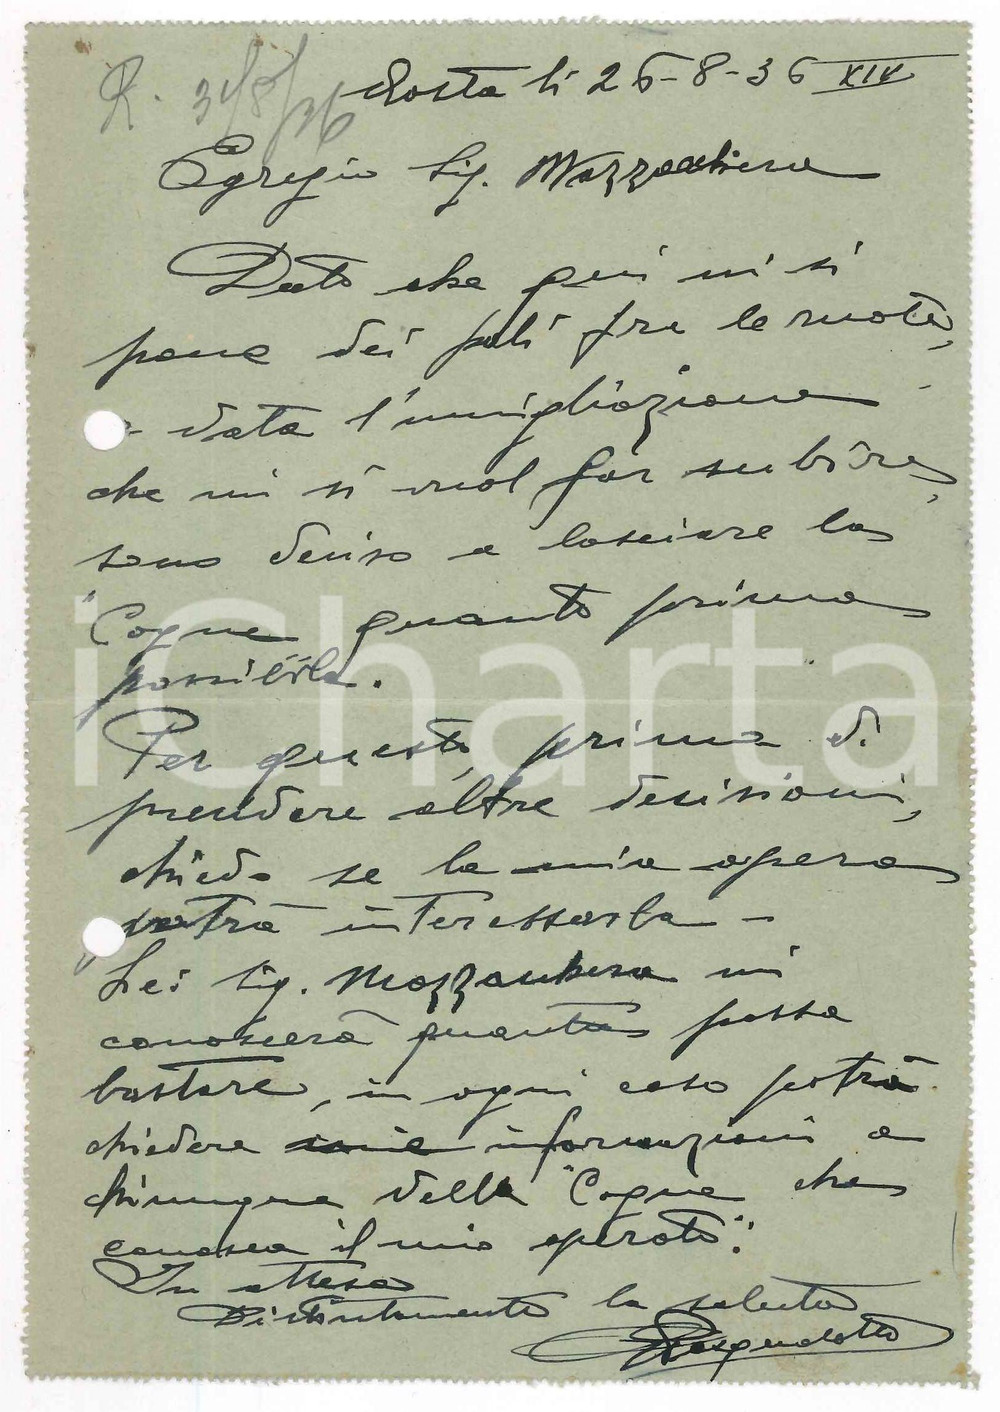 R. 31/8/36
Aosta li 26-8-36 XIV
Egregio Sig. Mozzanhiera
Dato che qui mi si
pone dei pali fra le ruote,
e data l'umigliazione
che mi si vuol far subire,
sono deciso a lasciare la
"Cogne quanto prima
possibile".
Per questo, prima di
prendere altre decisioni,
chiedo se la mia opera
potrà interessarla -
Lei Sig. mi
conoscerà quanto possa
bastare, in ogni caso potrà
chiedere informazioni a
chiunque della "Cogne che
conosca il mio operato".
In attesa
Distintamente la saluto
iCharta